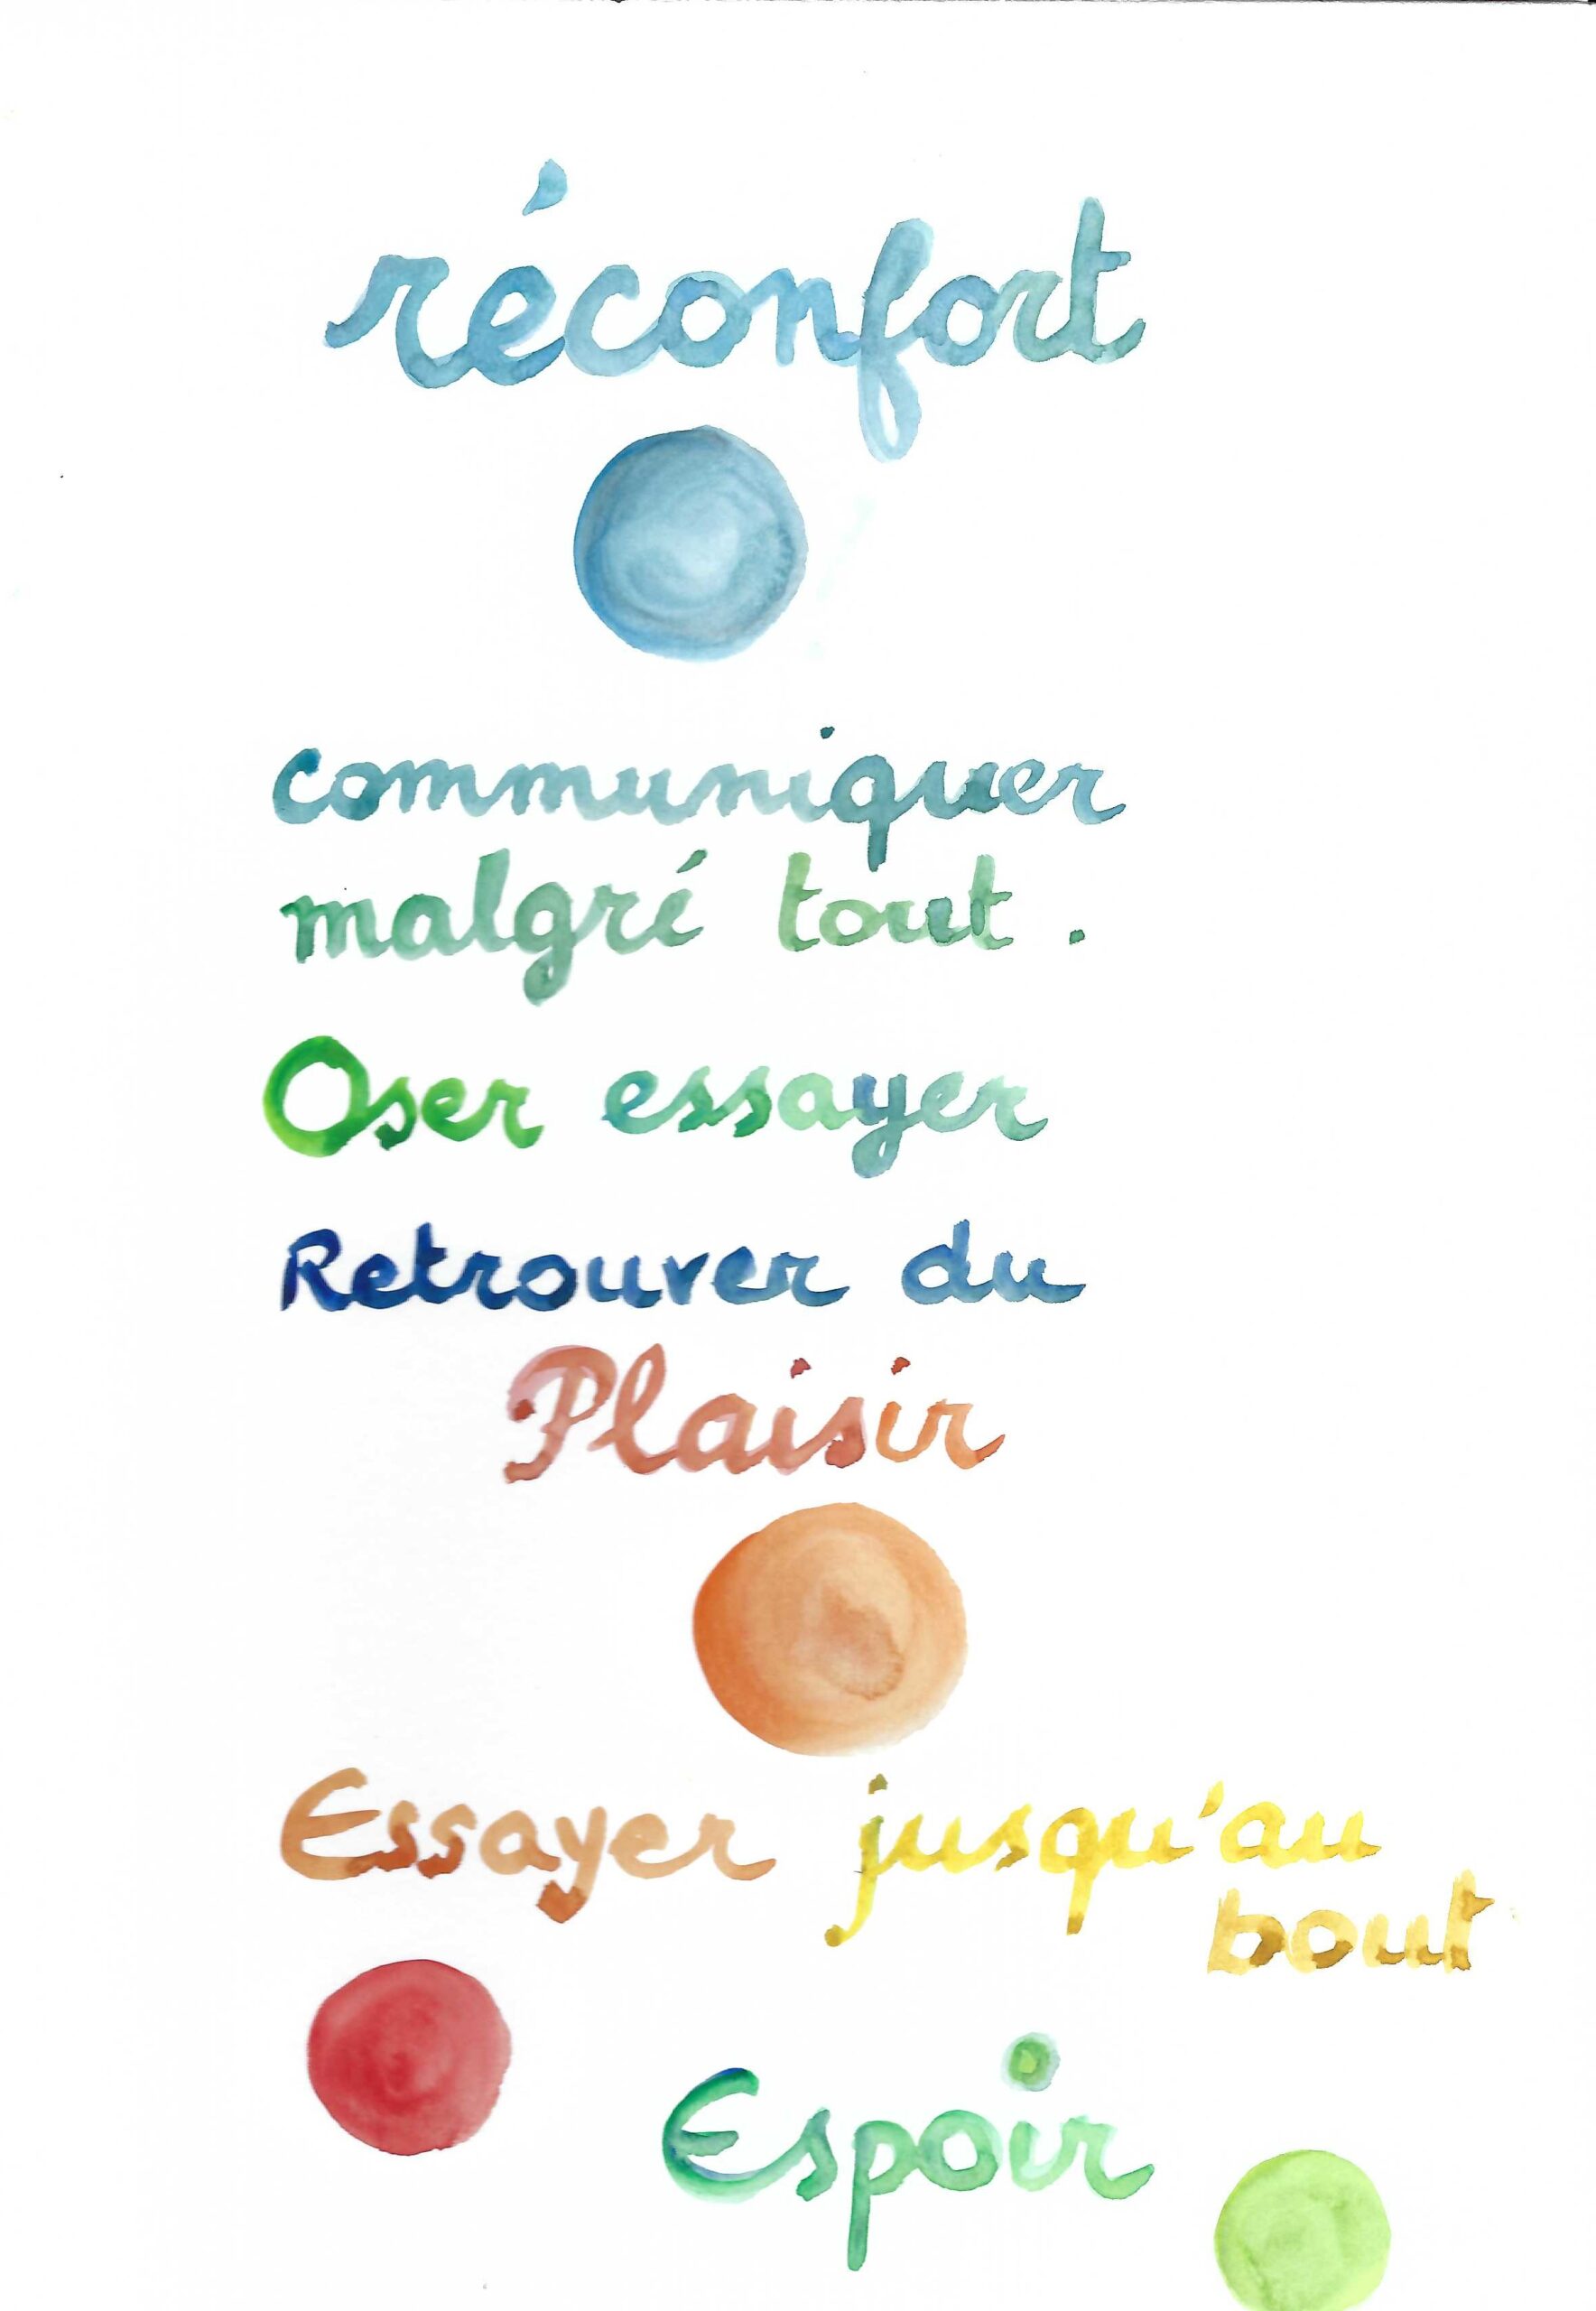 réconfort
communiquer
malgré tout.
Oser essayer
Retrouver du
Plaisir
Essayer jusqu'au
bout
Espoir